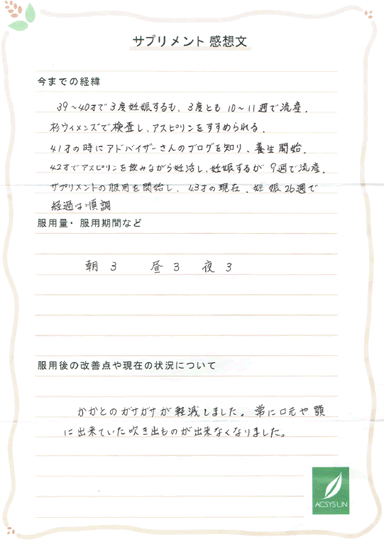 サプリメント 感想文
今までの経緯
39〜40才で3度妊娠するも、3度とも10〜11週で流産.
杉ウィメンズで検査し、アスピリンをすすめられる.
41才の時にアドバイザーさんのブログを知り、養生開始.
42才でアスピリンを飲みながら妊活し、妊娠するが9週で流産.
サプリメントの服用を開始し、43才の現在、妊娠26週で
経過は順調
服用量・服用期間など
朝 3 昼 3 夜 3
服用後の改善点や現在の状況について
かかとのガサガサが軽減しました。常に口元や顎
に出来ていた吹き出ものが出来なくなりました。
ACSYSUN